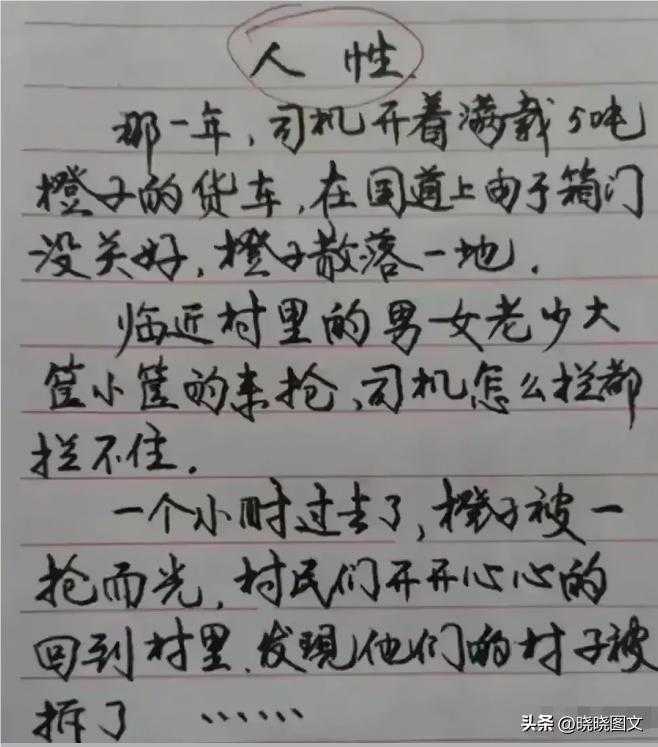 人性
那一年，司机开着满载5吨
橙子的货车，在国道上由于箱门
没关好，橙子散落一地．
临近村里的男女老少大
筐小筐的来抢，司机怎么拦都
拦不住．
一个小时过去了，橙子被一
抢而光，村民们开开心心的
回到村里，发現他们的村子被
拆了 ……
头条 @晓晓图文